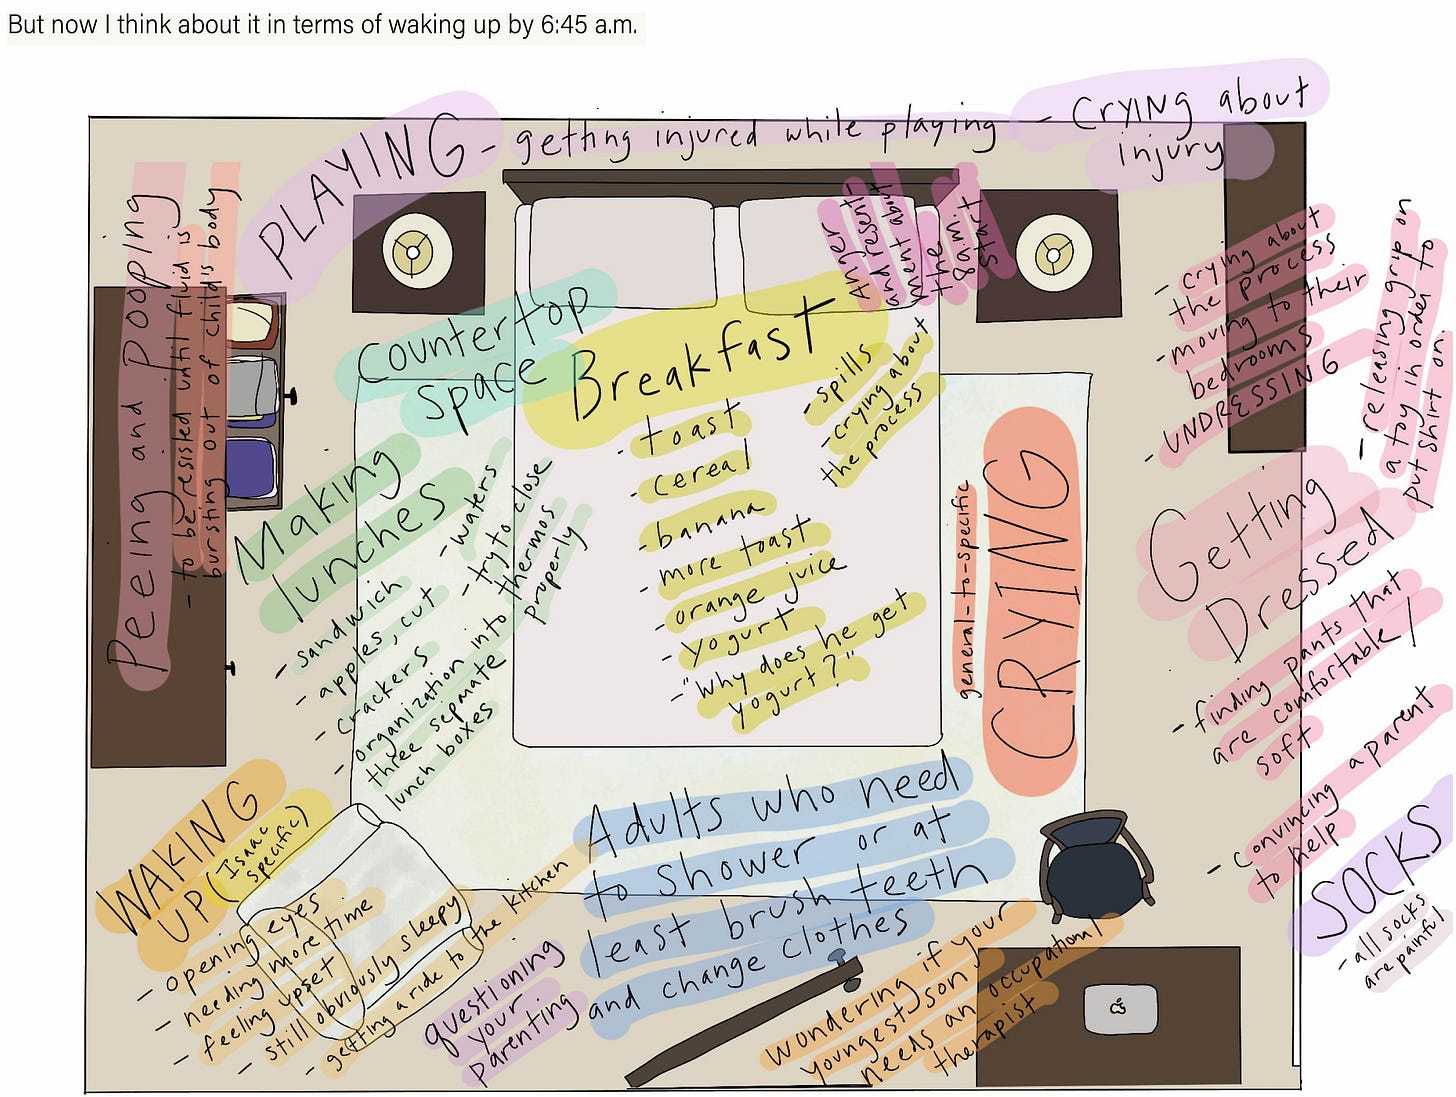 But now I think about it in terms of waking up by 6:45 a.m.
PLAYING - getting injured while playing - CRYING about
injury
Peeing and Pooping
- to be resisted until fluid is
bursting out of child's body
Anger
and resent-
ment about
the
8am
starts
Countertop
space
Breakfast
- toast
- cereal
- banana
- more toast
- orange juice
- yogurt
- "Why does he get
yogurt?"
- spills
- crying about
the process
Making
lunches
- sandwich
- apples, cut
- crackers
- organization into
three separate
lunch boxes
- waters
- try to close
thermos
properly
CRYING
general-to-specific
- crying about
the process
- moving to their
bedrooms
- UNDRESSING
- releasing grip on
a toy in order to
put shirt on.
Getting
Dressed
- finding pants that
are comfortable/
soft
- convincing a parent
to help
SOCKS
- all socks
are painful
WAKING
UP (Isaac
specific)
- opening eyes
- needing more time
- feeling upset
- still obviously sleepy
- getting a ride to the kitchen
Adults who need
to shower or at
least brush teeth
and change clothes
questioning
your
parenting
wondering if your
youngest son
needs an occupational
therapist